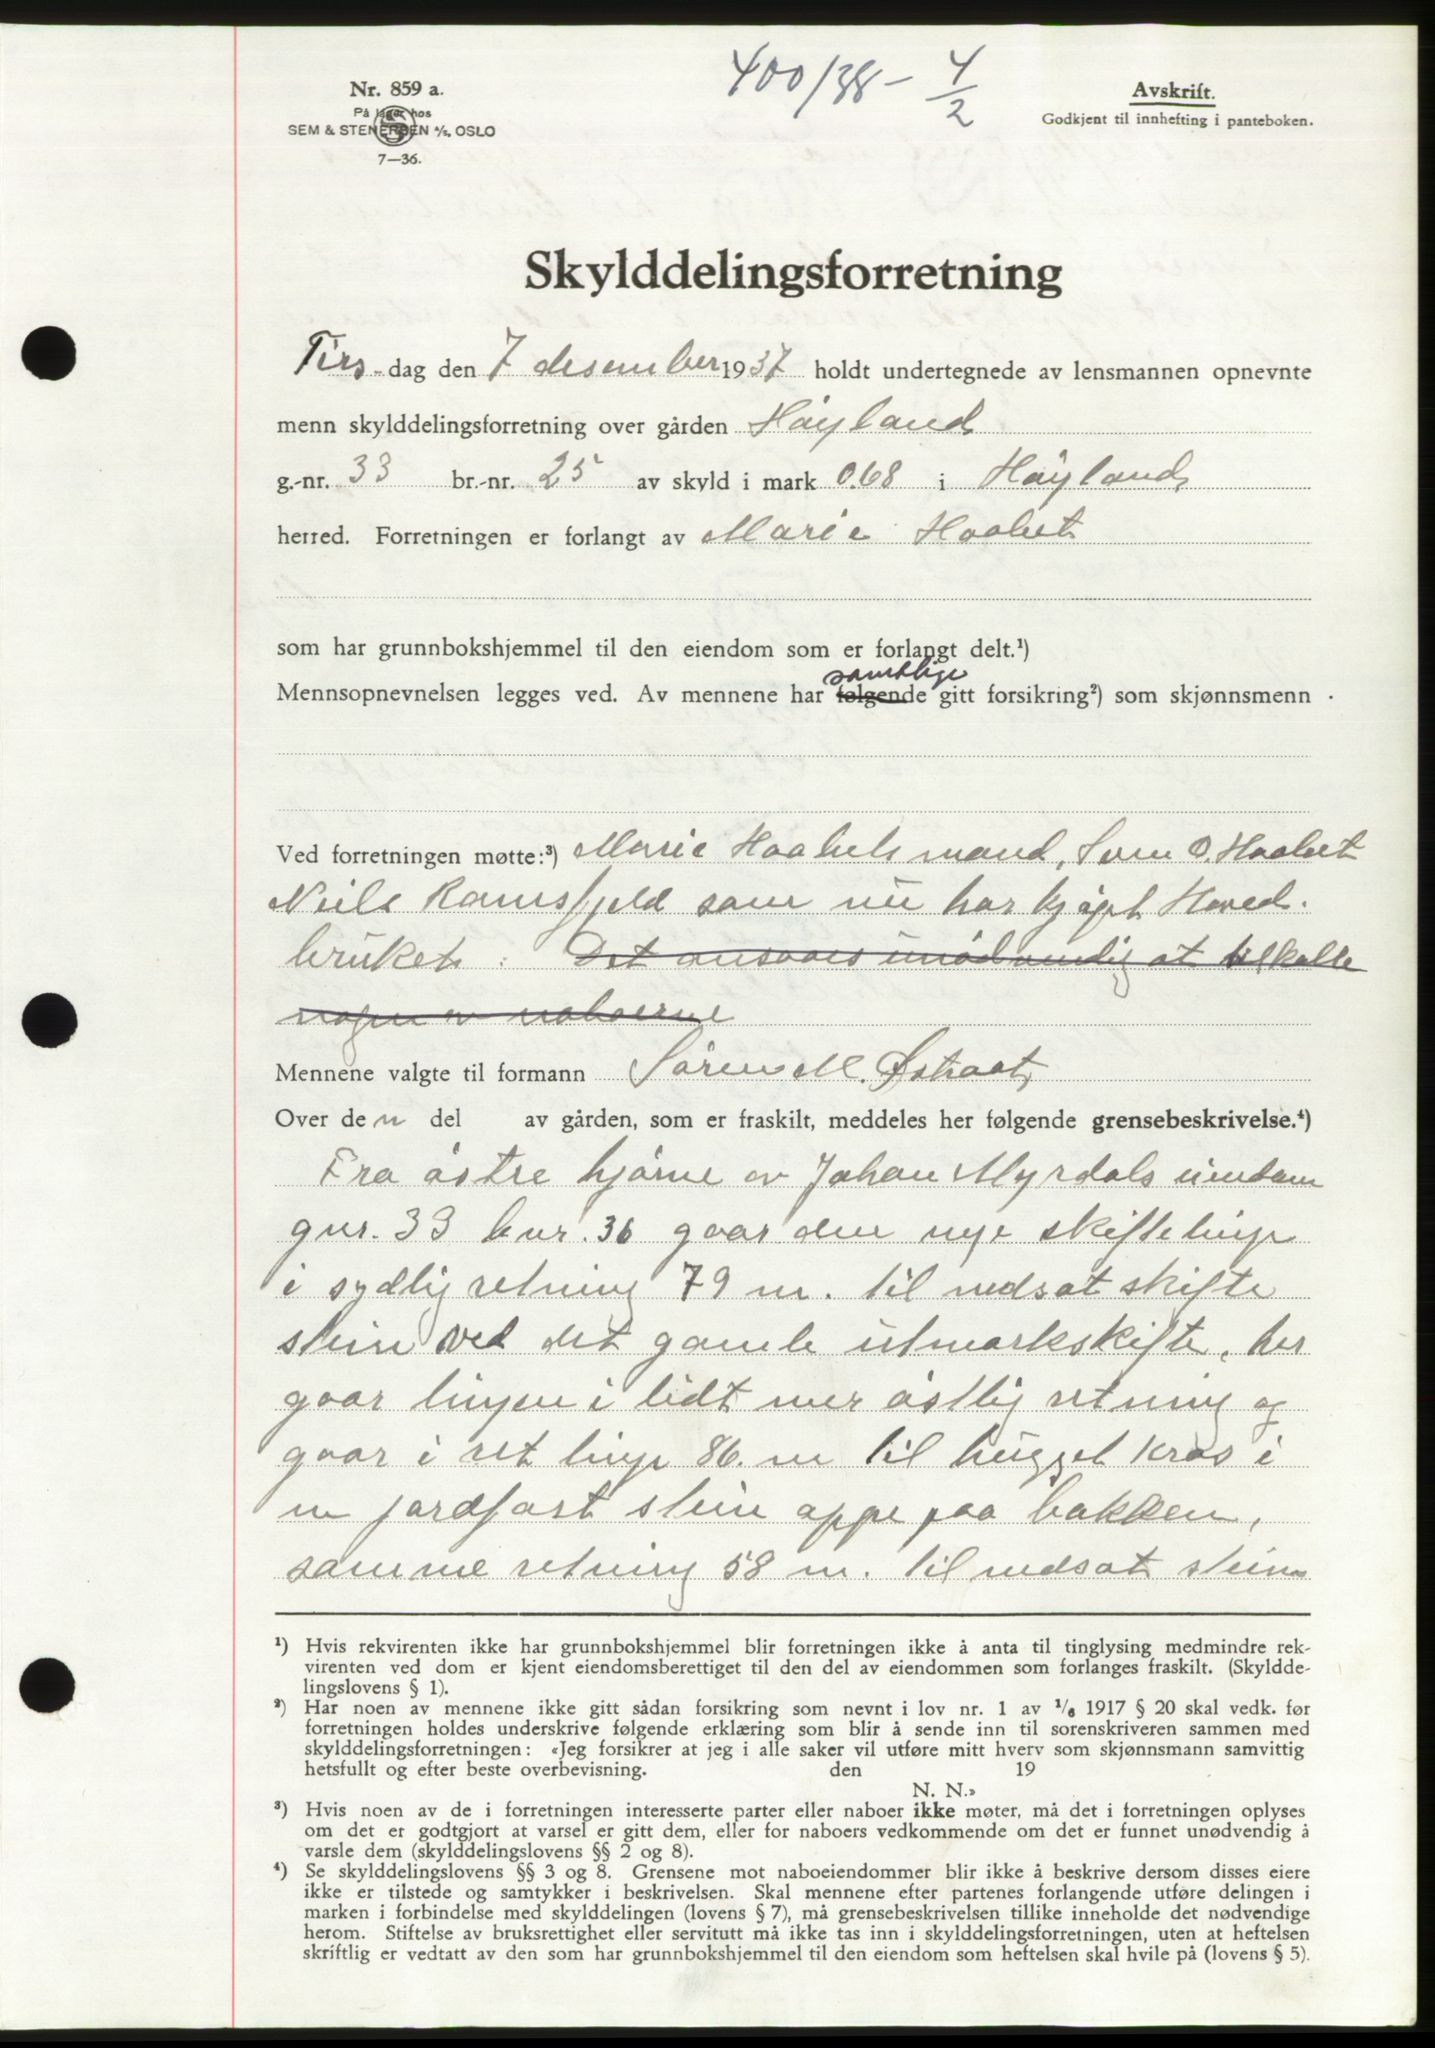 400/38 - 4/2
Nr. 859 a.
På lager hos
SEM & STENERSEN A/S, OSLO
7—36.
Avskrift.
Godkjent til innhefting i panteboken.
Skylddelingsforretning
Tirs-dag den 7 desember 1937 holdt undertegnede av lensmannen opnevnte
menn skylddelingsforretning over gården Høyland
g.-nr. 33 br.-nr. 25 av skyld i mark 0.68 i Høyland
herred. Forretningen er forlangt av Marie Haabet
som har grunnbokshjemmel til den eiendom som er forlangt delt.¹)
samtlige
Mennsopnevnelsen legges ved. Av mennene har følgende gitt forsikring²) som skjønnsmenn
Ved forretningen møtte:³) Marie Haabets mand, O. Haabet
Nils Ramsfjeld som nu har kjøpt Hoved-
bruket. Det ansaaes unødvendig at tilkalle
nogen av naboerne
Mennene valgte til formann Sören M. Østraat
Over den del av gården, som er fraskilt, meddeles her følgende grensebeskrivelse.⁴)
Fra östre hjörne av Johan Myrdals eiendom
gnr. 33 bnr. 36 gaar den nye skiftelinje
i sydlig retning 79 m. til nedsat skifte
stein ved det gamle utmarkskifte, her
gaar linjen i lidt mer östlig retning og
gaar i ret linje 86. m til hugget kros i
en jordfast stein oppe paa bakken,
samme retning 58 m. til nedsat stein
¹) Hvis rekvirenten ikke har grunnbokshjemmel blir forretningen ikke å anta til tinglysing medmindre rek-
virenten ved dom er kjent eiendomsberettiget til den del av eiendommen som forlanges fraskilt. (Skyldde-
lingslovens § 1).
²) Har noen av mennene ikke gitt sådan forsikring som nevnt i lov nr. 1 av ¹/₆ 1917 § 20 skal vedk. før
forretningen holdes underskrive følgende erklæring som blir å sende inn til sorenskriveren sammen med
skylddelingsforretningen: «Jeg forsikrer at jeg i alle saker vil utføre mitt hverv som skjønnsmann samvittig
hetsfullt og efter beste overbevisning. den 19
N. N.»
³) Hvis noen av de i forretningen interesserte parter eller naboer ikke møter, må det i forretningen oplyses
om det er godtgjort at varsel er gitt dem, eller for naboers vedkommende om det er funnet unødvendig å
varsle dem (skylddelingslovens §§ 2 og 8).
⁴) Se skylddelingslovens §§ 3 og 8. Grensene mot naboeiendommer blir ikke å beskrive dersom disses eiere
ikke er tilstede og samtykker i beskrivelsen. Skal mennene efter partenes forlangende utføre delingen i
marken i forbindelse med skylddelingen (lovens § 7), må grensebeskrivelsen tillike inneholde det nødvendige
herom. Stiftelse av bruksrettighet eller servitutt må ikke tas inn i skylddelingsforretningen, uten at heftelsen
skriftlig er vedtatt av den som har grunnbokshjemmel til den eiendom som heftelsen skal hvile på (lovens § 5).